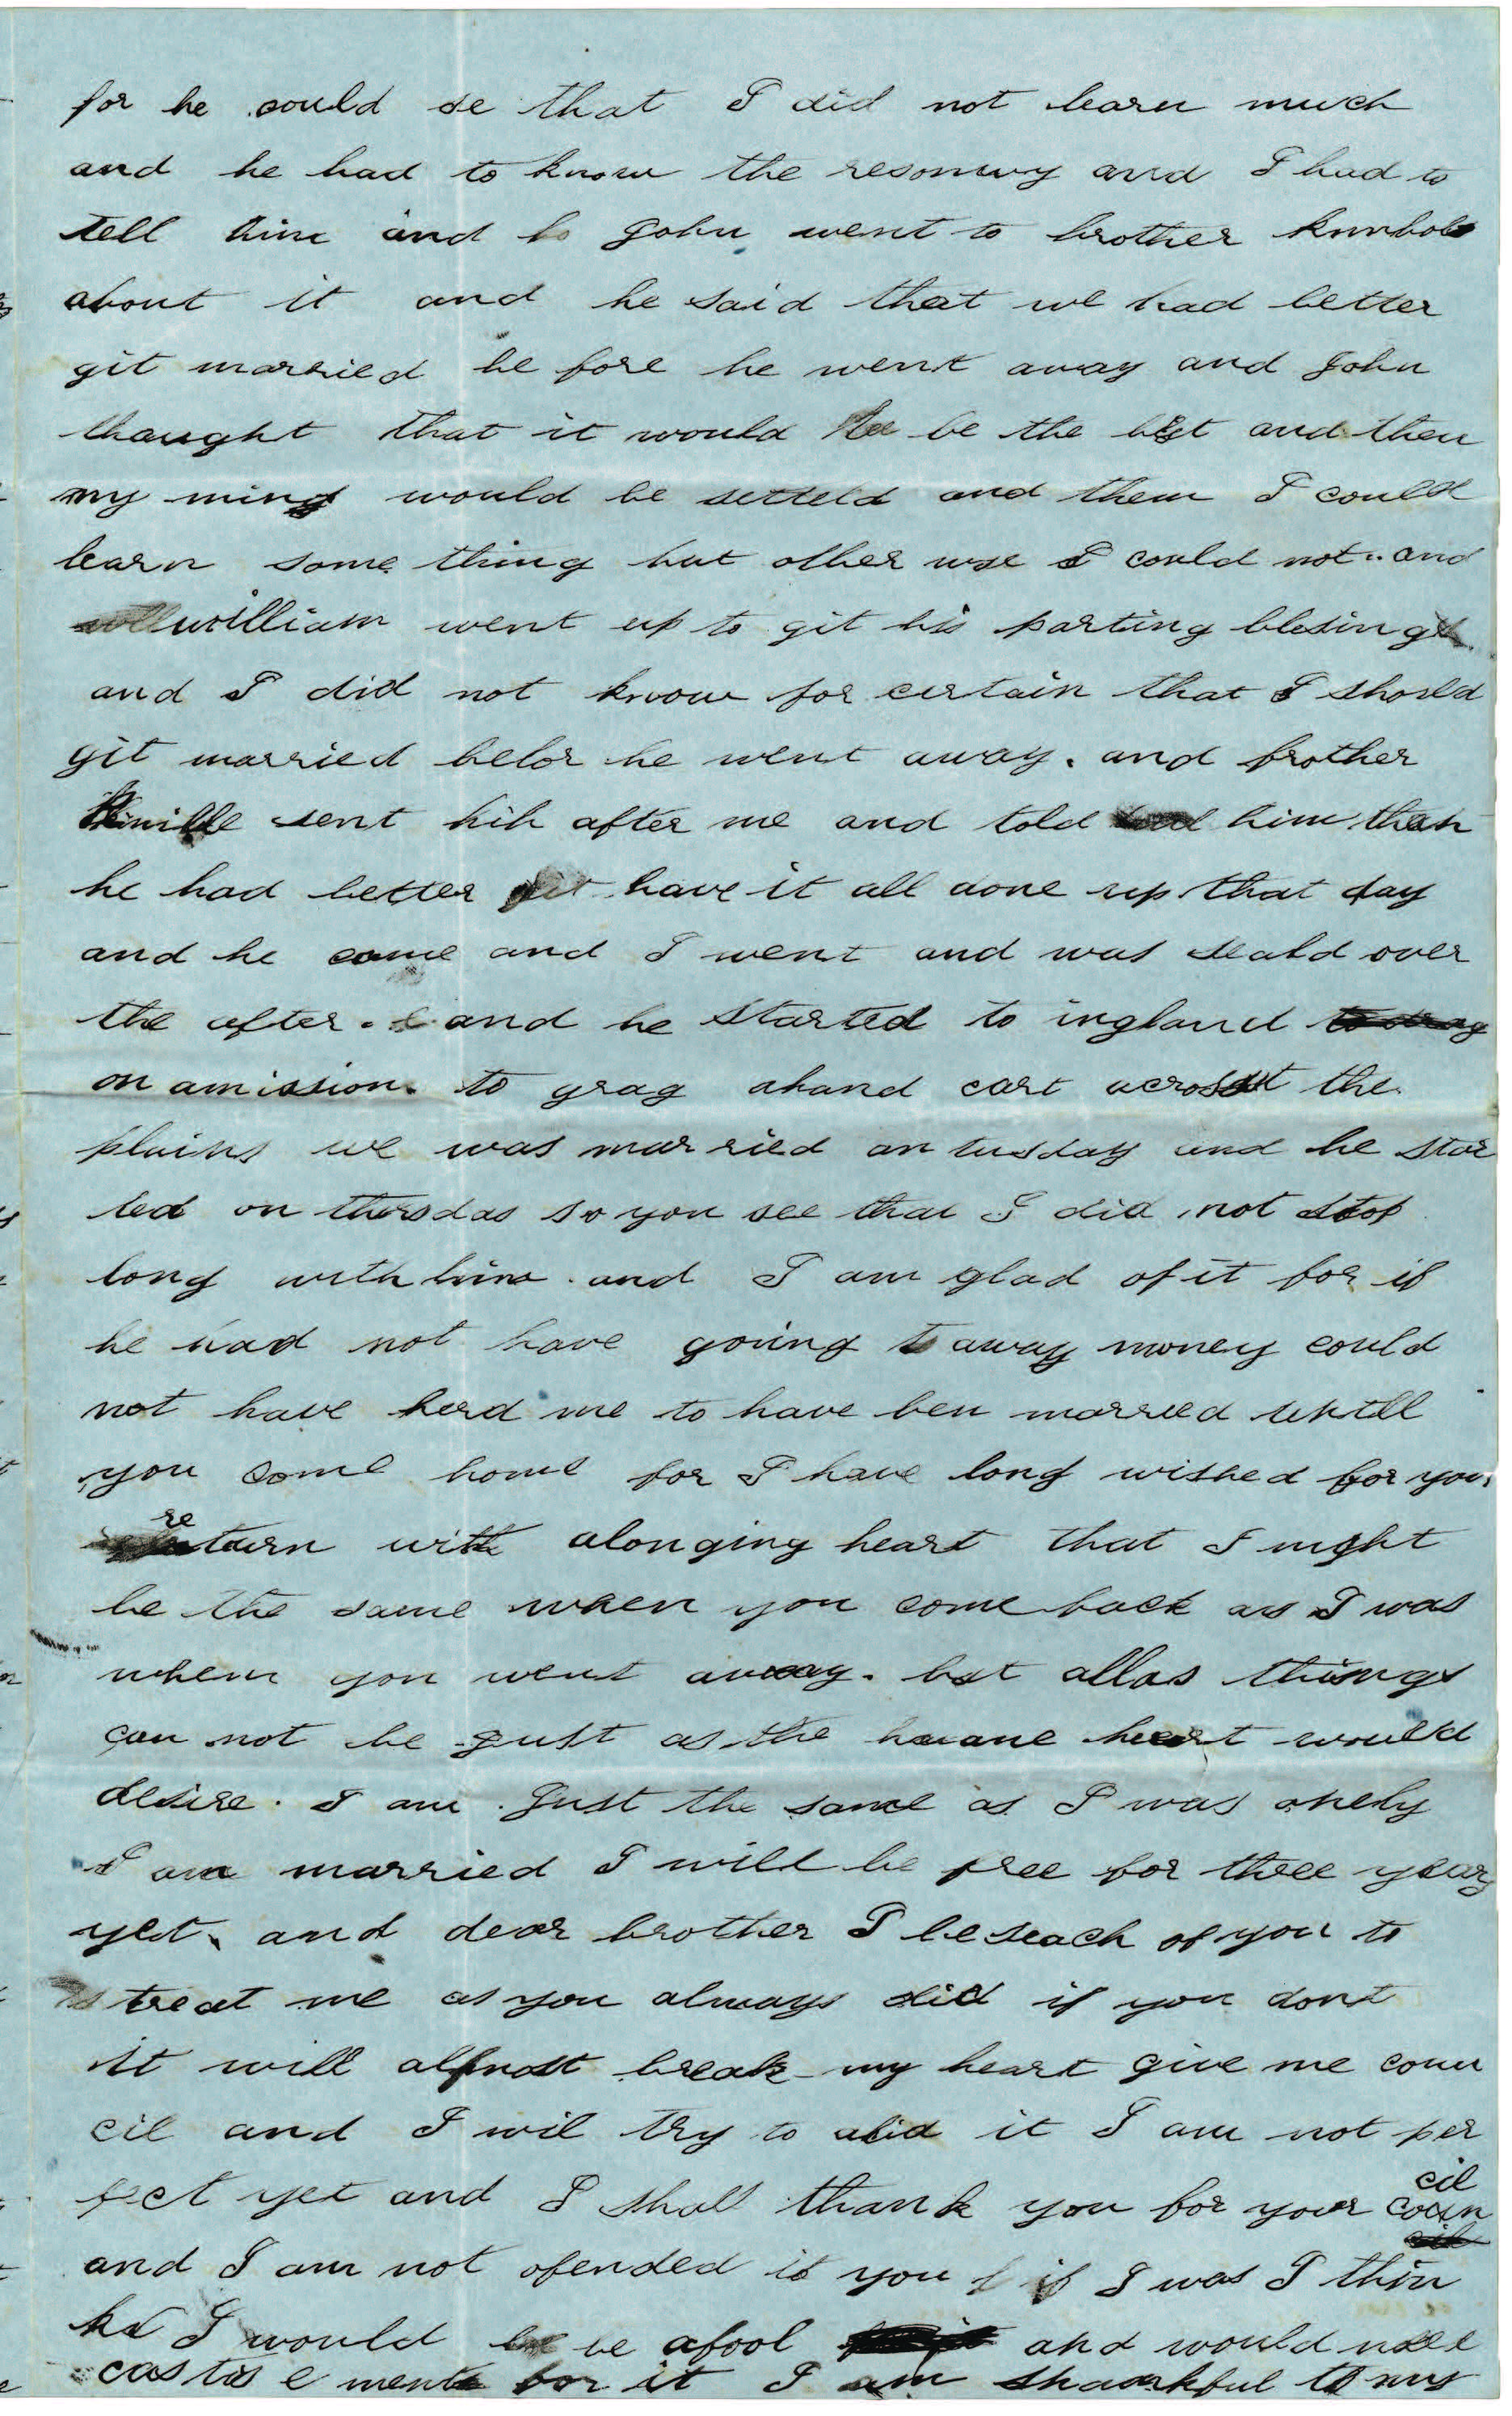 for he could se that I did not learn much
and he had to know the resonwy and I had to
tell him and so John went to brother
about it and he said that we had better
git married be fore he went away and John
thaught that it would be the best and then
my mind would be setteld and them I could
learn some thing but other wse I could not and
william went up to git his parting blesing
and I did not know for certain that I shosld
git married befor he went away. and brother
sent hih after me and told him than
he had better have it all done up that day
and he came and I went and was seald over
the after. and he started to ingland
on amission. to grag ahand cart acrosst the
plains we was married on tusday and he star
ted on thorsdas so you see that I did not stop
long with him. and I am glad of it for if
he had not have going away money could
not have herd me to have ben married untill
you come home for I have long wished for you
return with alonging heart that I might
be the same when you come back as I was
when you went away. but allas things
can not be gust as the huane heart would
desire. I am gust the same as I was onely
I am married I will be free for three years
yet. and dear brother I beseach of you to
treat me as you always did if you dont
it will allmost break my heart give me coun
cil and I wil try to abid it I am not per
fect yet and I shall thank you for your coun
cil
and I am not ofended it you if I was I thin
k I would be afool and would nead
castise ment for it I am thankful to my